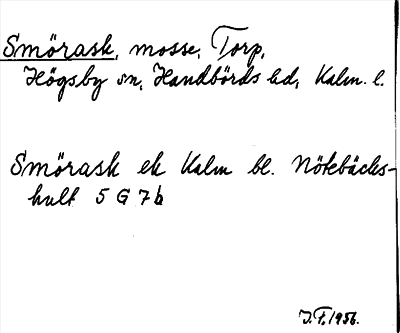 Smörask, mosse, Torp,
Högsby sn, Handbörds hd, Kalm. l.
Smörask ek Kalm bl. Nötebäcks-
hult 5 G 7 b
J.F. 1956.